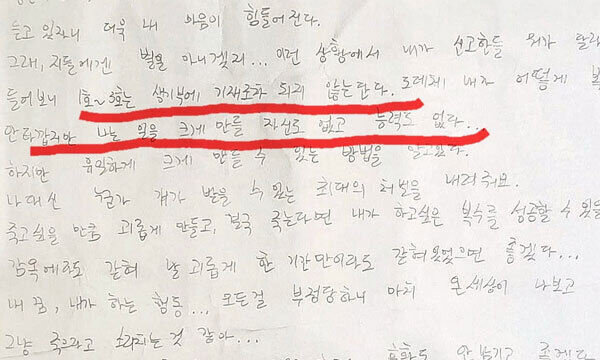 듣고 있자니 더욱 내 마음이 힘들어진다.
그래, 지들에겐 별일 아니겠지... 이런 상황에서 내가 신고한들 뭐가 달라
들어보니 1호~3호는 생기부에 기재조차 되지 않는단다. 도대체 내가 어떻게 복
안타깝지만 나는 일을 크게 만들 자신도 없고 능력도 없다...
하지만 유일하게 크게 만들 수 있는 방법을 알고있다.
나 대신 누군가 걔가 받을 수 있는 최대의 처벌을 내려줘요.
죽고싶을 만큼 괴롭게 만들고, 결국 죽는다면 내가 하고싶은 복수를 성공할 수 있을
감옥에라도 갇혀 날 괴롭게 한 기간만이라도 갇혀있었으면 좋겠다...
내 꿈, 내가 하는 행동... 모든걸 부정당하니 마치 온세상이 나보고
그냥 죽으라고 소리치는 것 같아...
안 남기고